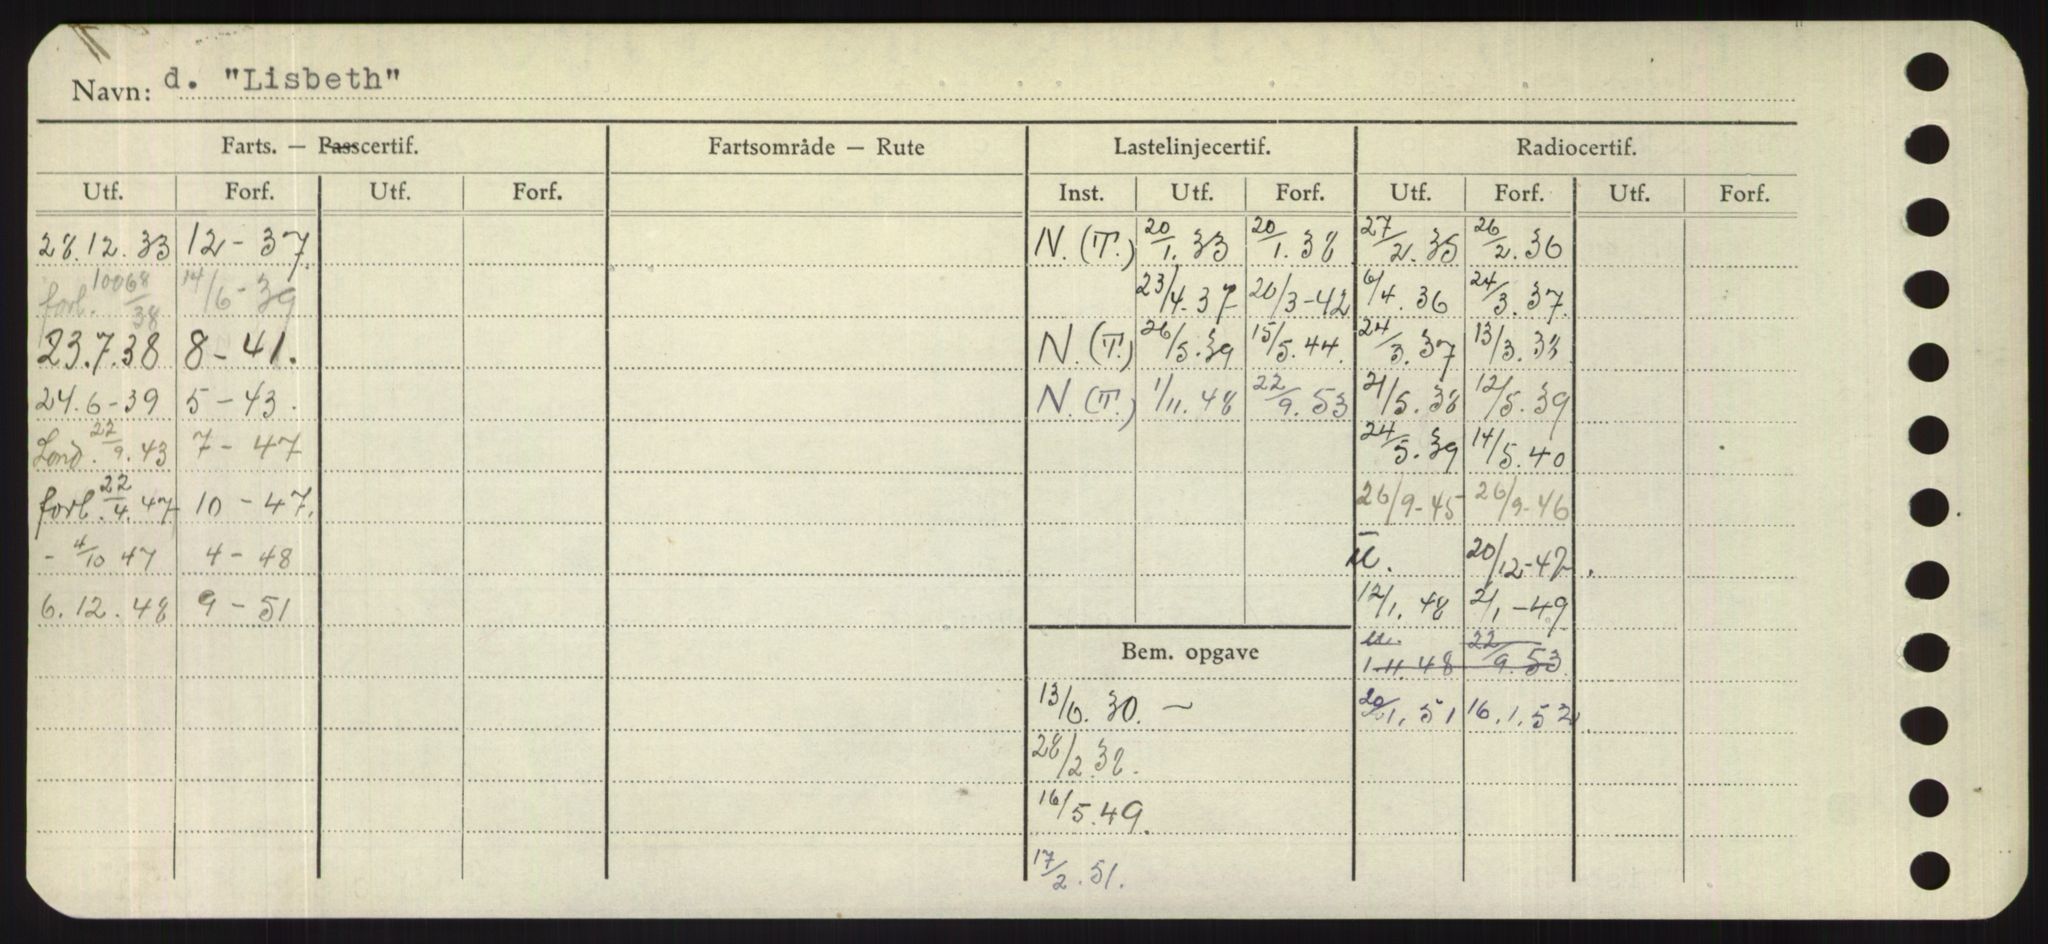 Navn: d. "Lisbeth"
Farts. — Passcertif. Fartsområde — Rute Lastelinjecertif. Radiocertif.
Utf. Forf. Utf. Forf. Inst. Utf. Forf. Utf. Forf. Utf. Forf.
28.12.33 12-37. N.(T.) 20/1.33 20/1.38 27/2.35 26/2.36
forl. 10068/38 14/6-39 23/4.37 20/3-42 6/4.36 24/3.37.
23.7.38 8-41. N.(T.) 26/5.39 15/5.44. 24/3.37 13/3.38
24.6-39 5-43. N.(T.) 1/11.48 22/9.53 21/5.38 12/5.39
Lond. 22/9.43 7-47 24/5.39 14/5.40
forl. 22/4.47 10-47. 26/9-45 26/9-46
- 4/10 47 4-48 M. 20/12-47.
6.12.48 9-51 12/1.48 2/1-49
Bem. opgave 1.11.48 22/9.53
13/6.30. ~ 20/1.51 16.1.52
28/2.38.
16/5.49.
17/2.51.